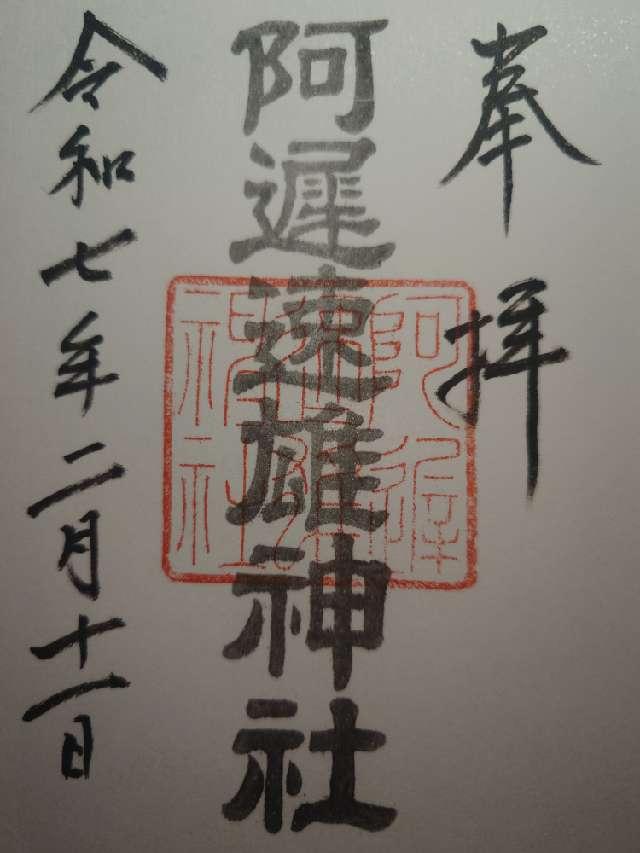 奉拝
阿遲速雄神社
令和七年二月十一日
阿遅速雄神社